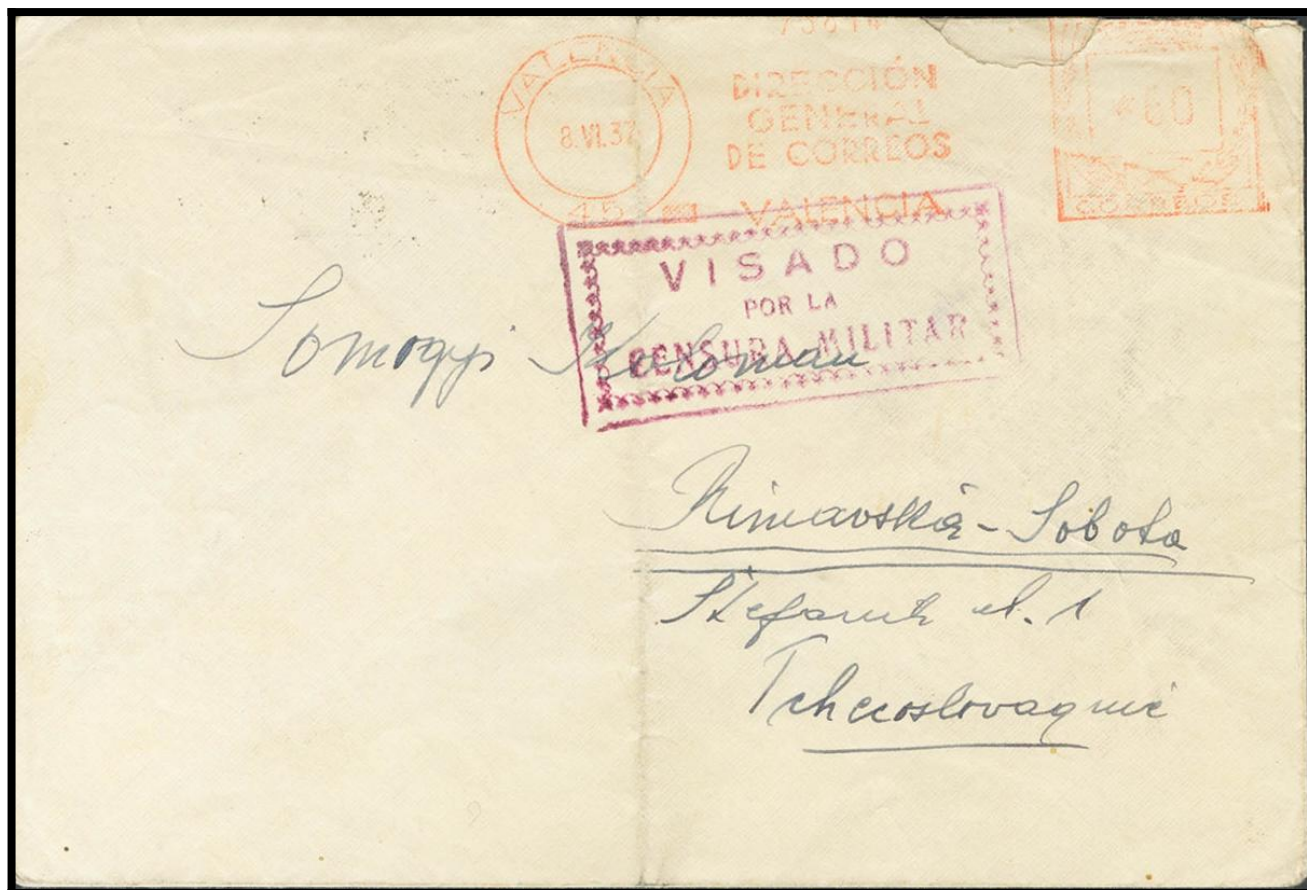 VALENCIA
8.VI.37
DIRECCIÓN
GENERAL
DE CORREOS
VALENCIA
*60
CORREOS
VISADO
POR LA
CENSURA MILITAR
Somogyi Koloman
Rimavská-Sobota
Štefanik ul. 1
Tchecoslovaquie